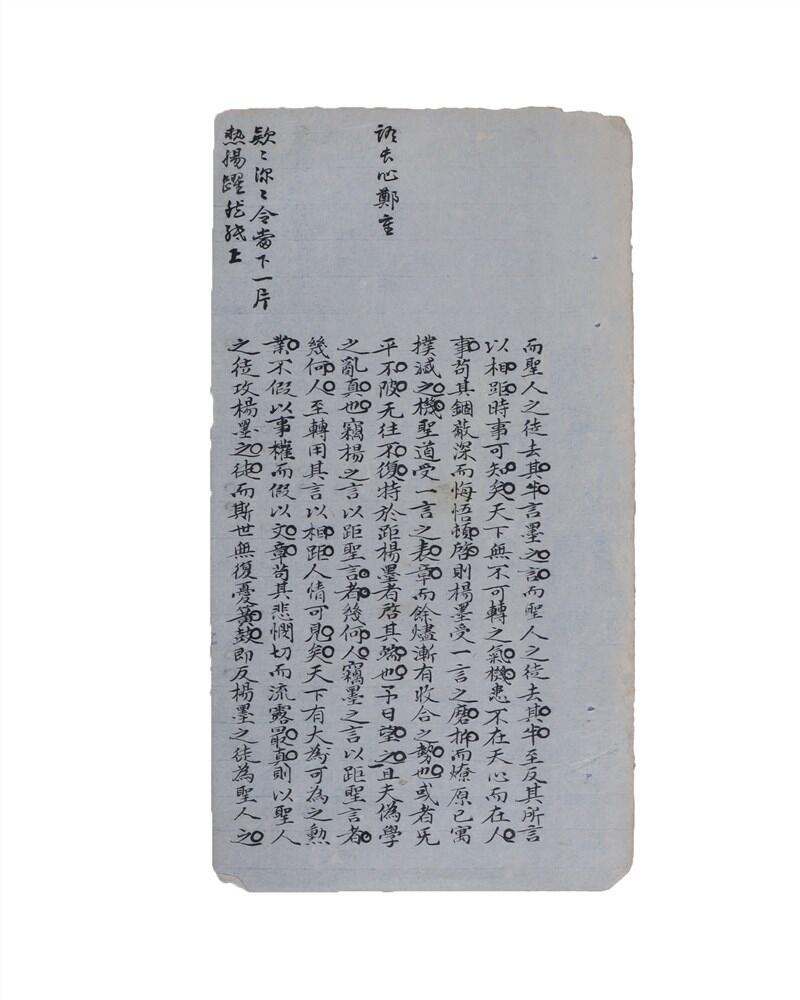 語長心鄭重
欵〻深〻令當下一片
熱腸躍然紙上
而聖人之徒去其半言墨之言而聖人之徒去其半至反其所言
以相距時事可知矣天下無不可轉之氣機患不在天心而在人
事苟其錮蔽深而悔悟頓啓則楊墨受一言之磨折而燎原已寓
撲滅之機聖道受一言之表章而餘燼漸有收合之勢也或者旡
平不陂无往不復特於距楊墨者啓其端也予日望之且夫偽學
之亂真也竊楊之言以距聖言者幾何人竊墨之言以距聖言者
幾何人至轉用其言以相距人情可見矣天下有大為可為之勲
業不假以事權而假以文章苟其悲憫切而流露最真則以聖人
之徒攻楊墨之徒而斯世無復憂簧鼓即反楊墨之徒為聖人之